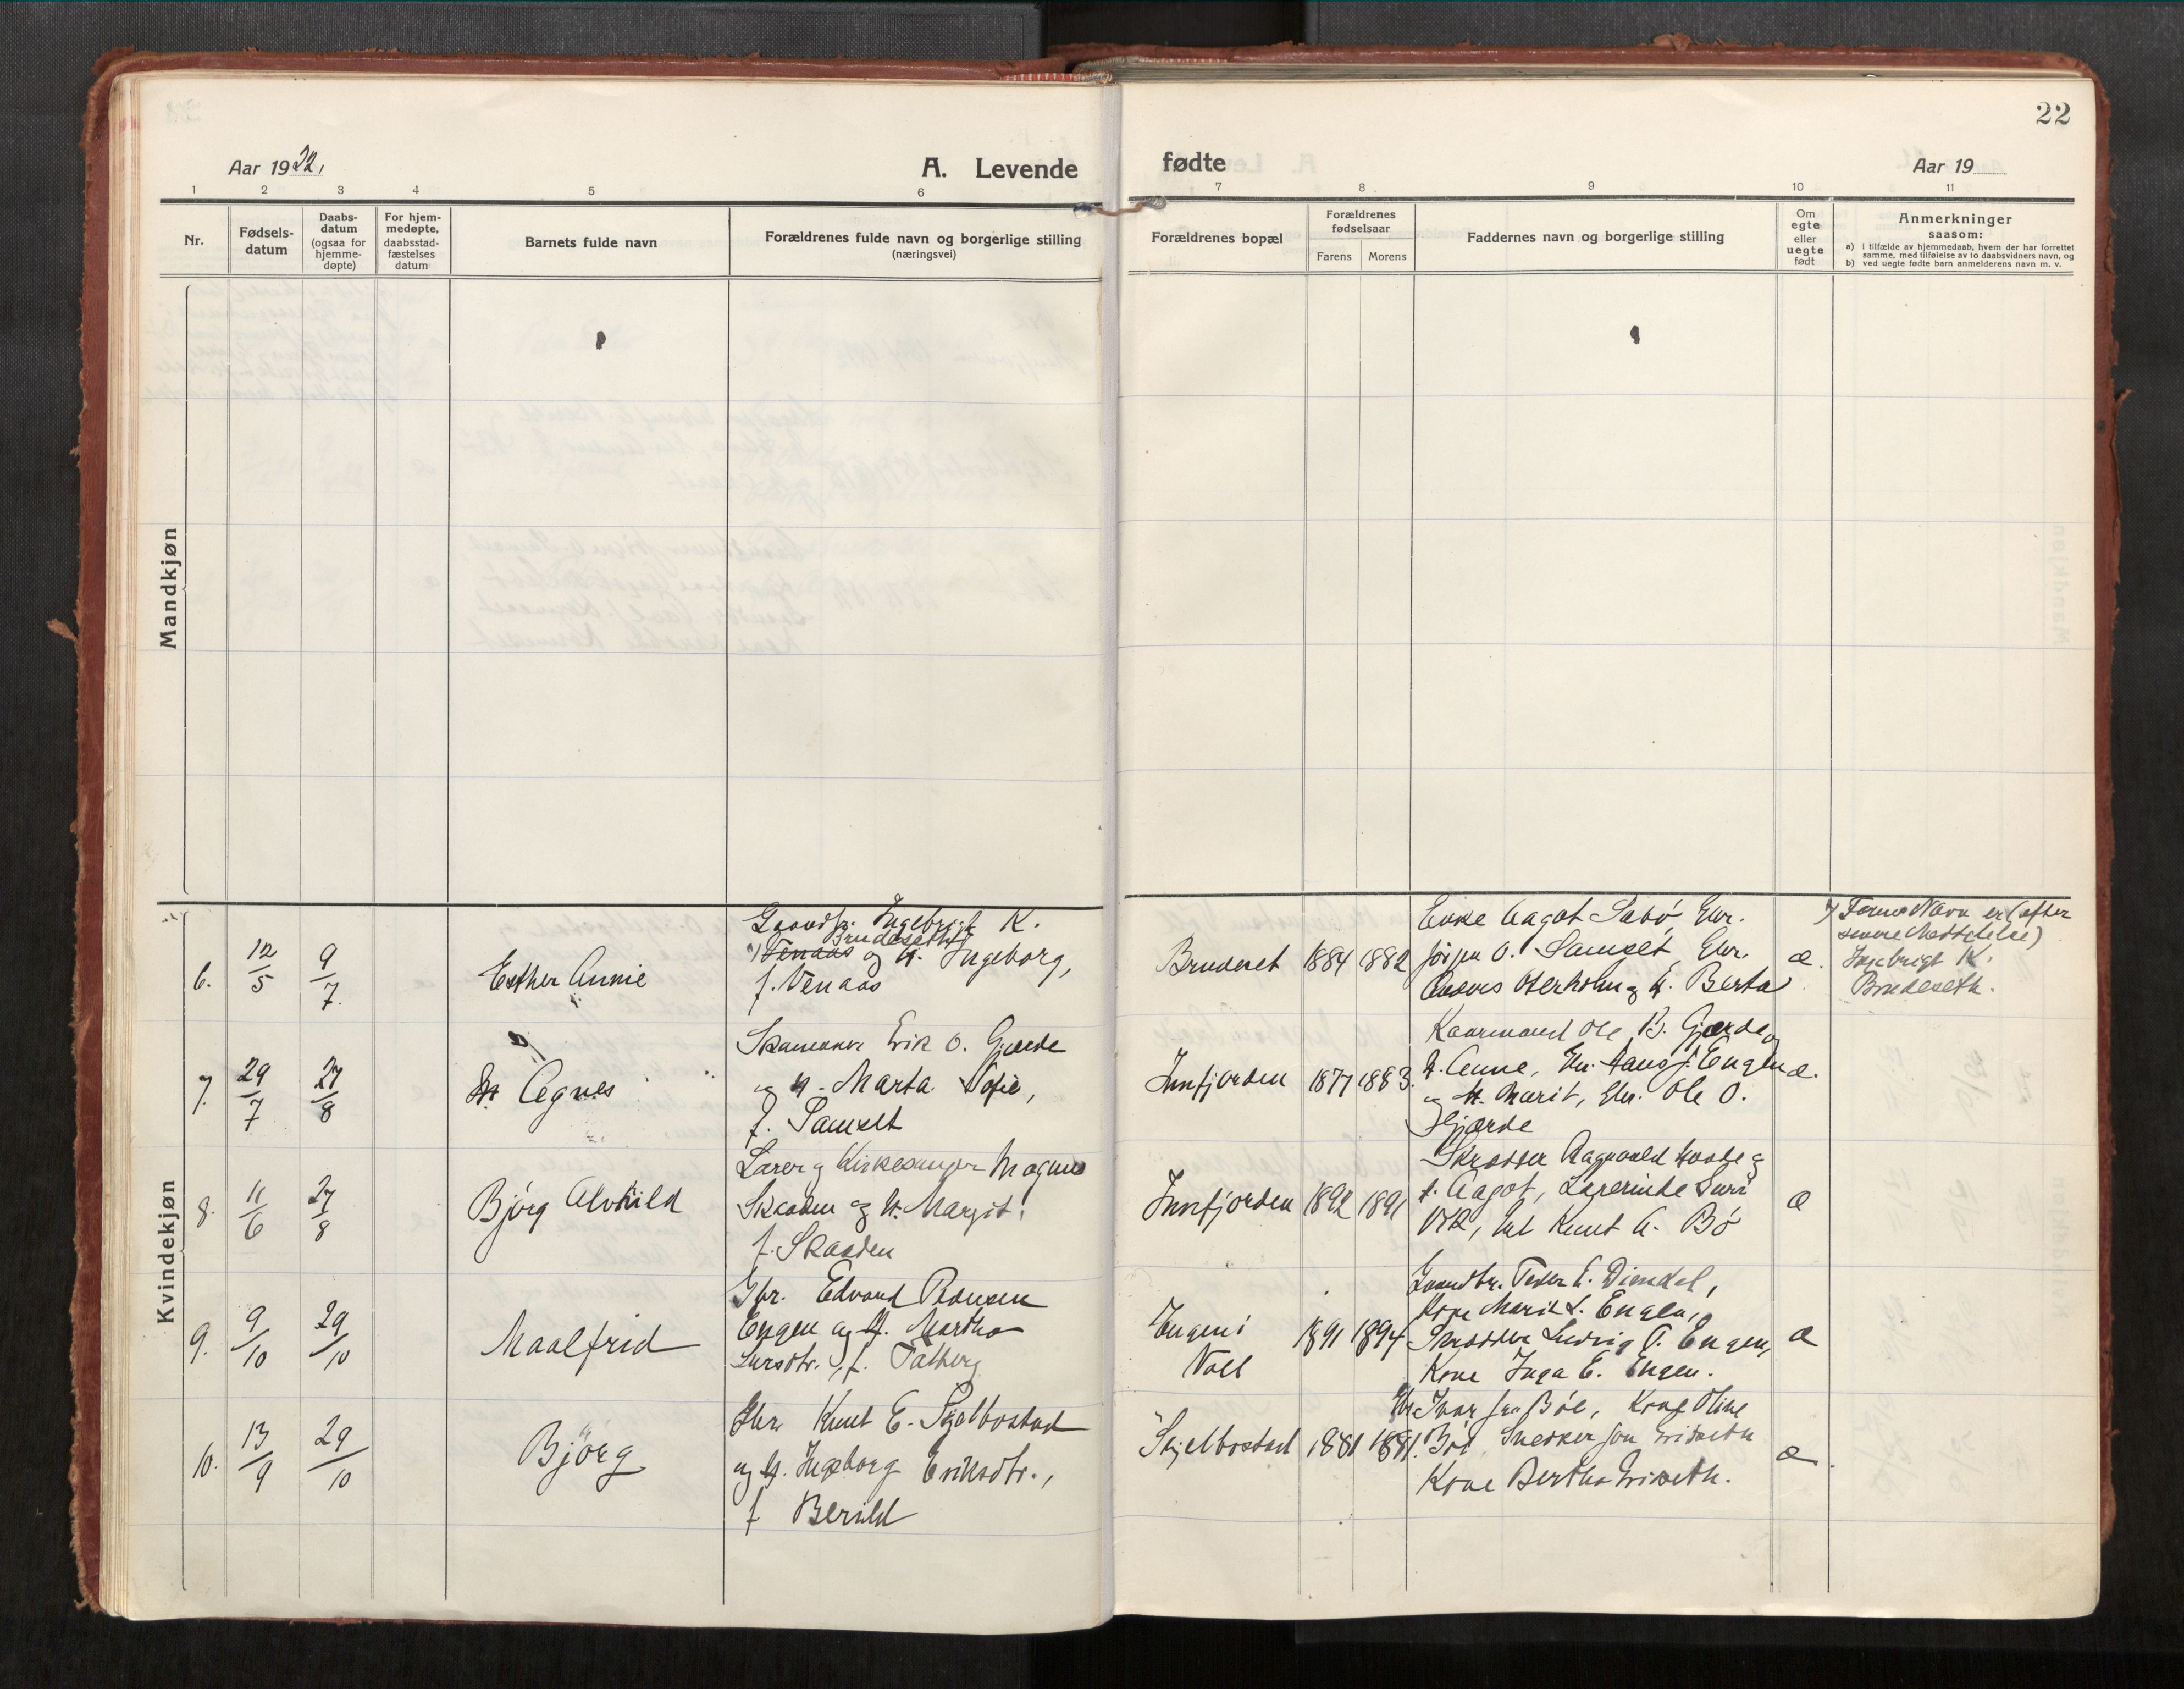 22
Aar 1922,
A. Levende
fødte
Aar 19
1 2 3 4 5 6 7 8 9 10 11
Nr.
Fødsels-
datum
Daabs-
datum
(ogsaa for
hjemme-
døpte)
For hjem-
medøpte,
daabsstad-
fæstelses
datum
Barnets fulde navn
Forældrenes fulde navn og borgerlige stilling
(næringsvei)
Forældrenes bopæl
Forældrenes
fødselsaar
Farens Morens
Faddernes navn og borgerlige stilling
Om
egte
eller
uegte
født
Anmerkninger
saasom:
a) i tilfælde av hjemmedaab, hvem der har forrettet
samme, med tilføielse av to daabsvidners navn, og
b) ved uegte fødte barn anmelderens navn m. v.
Mandkjøn
Kvindekjøn
6.
12/5
9/7.
Esther Annie
Gaardbr. Ingebrigt K.
Brudeseth
Venaas og H. Ingeborg,
f. Venaas
Bruderet
1884 1882
Enke Aagot Sabø, Gbr.
Jørgen O. Samset, Gbr.
Anders Oterholm og H. Berta
æ.
Farens Navn er (efter
senere Meddelelse)
Ingebrigt K.
Brudeseth.
7.
29/7
27/8
Agnes
Erik O. Gjærde
og H. Marta Sofie,
f. Samset
Innfjorden
1877 1883.
Kaarmand Ole B. Gjærde og
H. Anne, Gbr. Hans J. Engen
og H. Marit, Gbr. Ole O.
Gjærde
æ.
8.
11/6
27/8
Bjørg Alvhild
Lærer og Kirkesanger Magnus
Skaaden og H. Margit,
f. Skaaden
Innfjorden
1892 1891
Skrædder Ragnvald
H. Aagot, Lærerinde
Vik, Knut A. Bø
æ
9.
9/10
29/10
Maalfrid
Gbr. Edvard Pedersen
Engen og H. Martha
Larsdtr., f. Talberg
Engen i
Voll
1891 1894
Gaardbr. Peder E. Diendal,
Kone Marit L. Engen,
Skrædder Ludvig P. Engen,
Kone Inga E. Engen.
æ
10.
13/9
29/10
Bjørg
Gbr Knut E. Skjelbostad
og H. Ingeborg Eriksdtr.,
f Berild
Skjelbostad
1881 1881.
Gbr. Ivar Bøe, Kone Oline
Bøe, Snedker Jon Griseth
Kone Bertha Griseth.
æ.